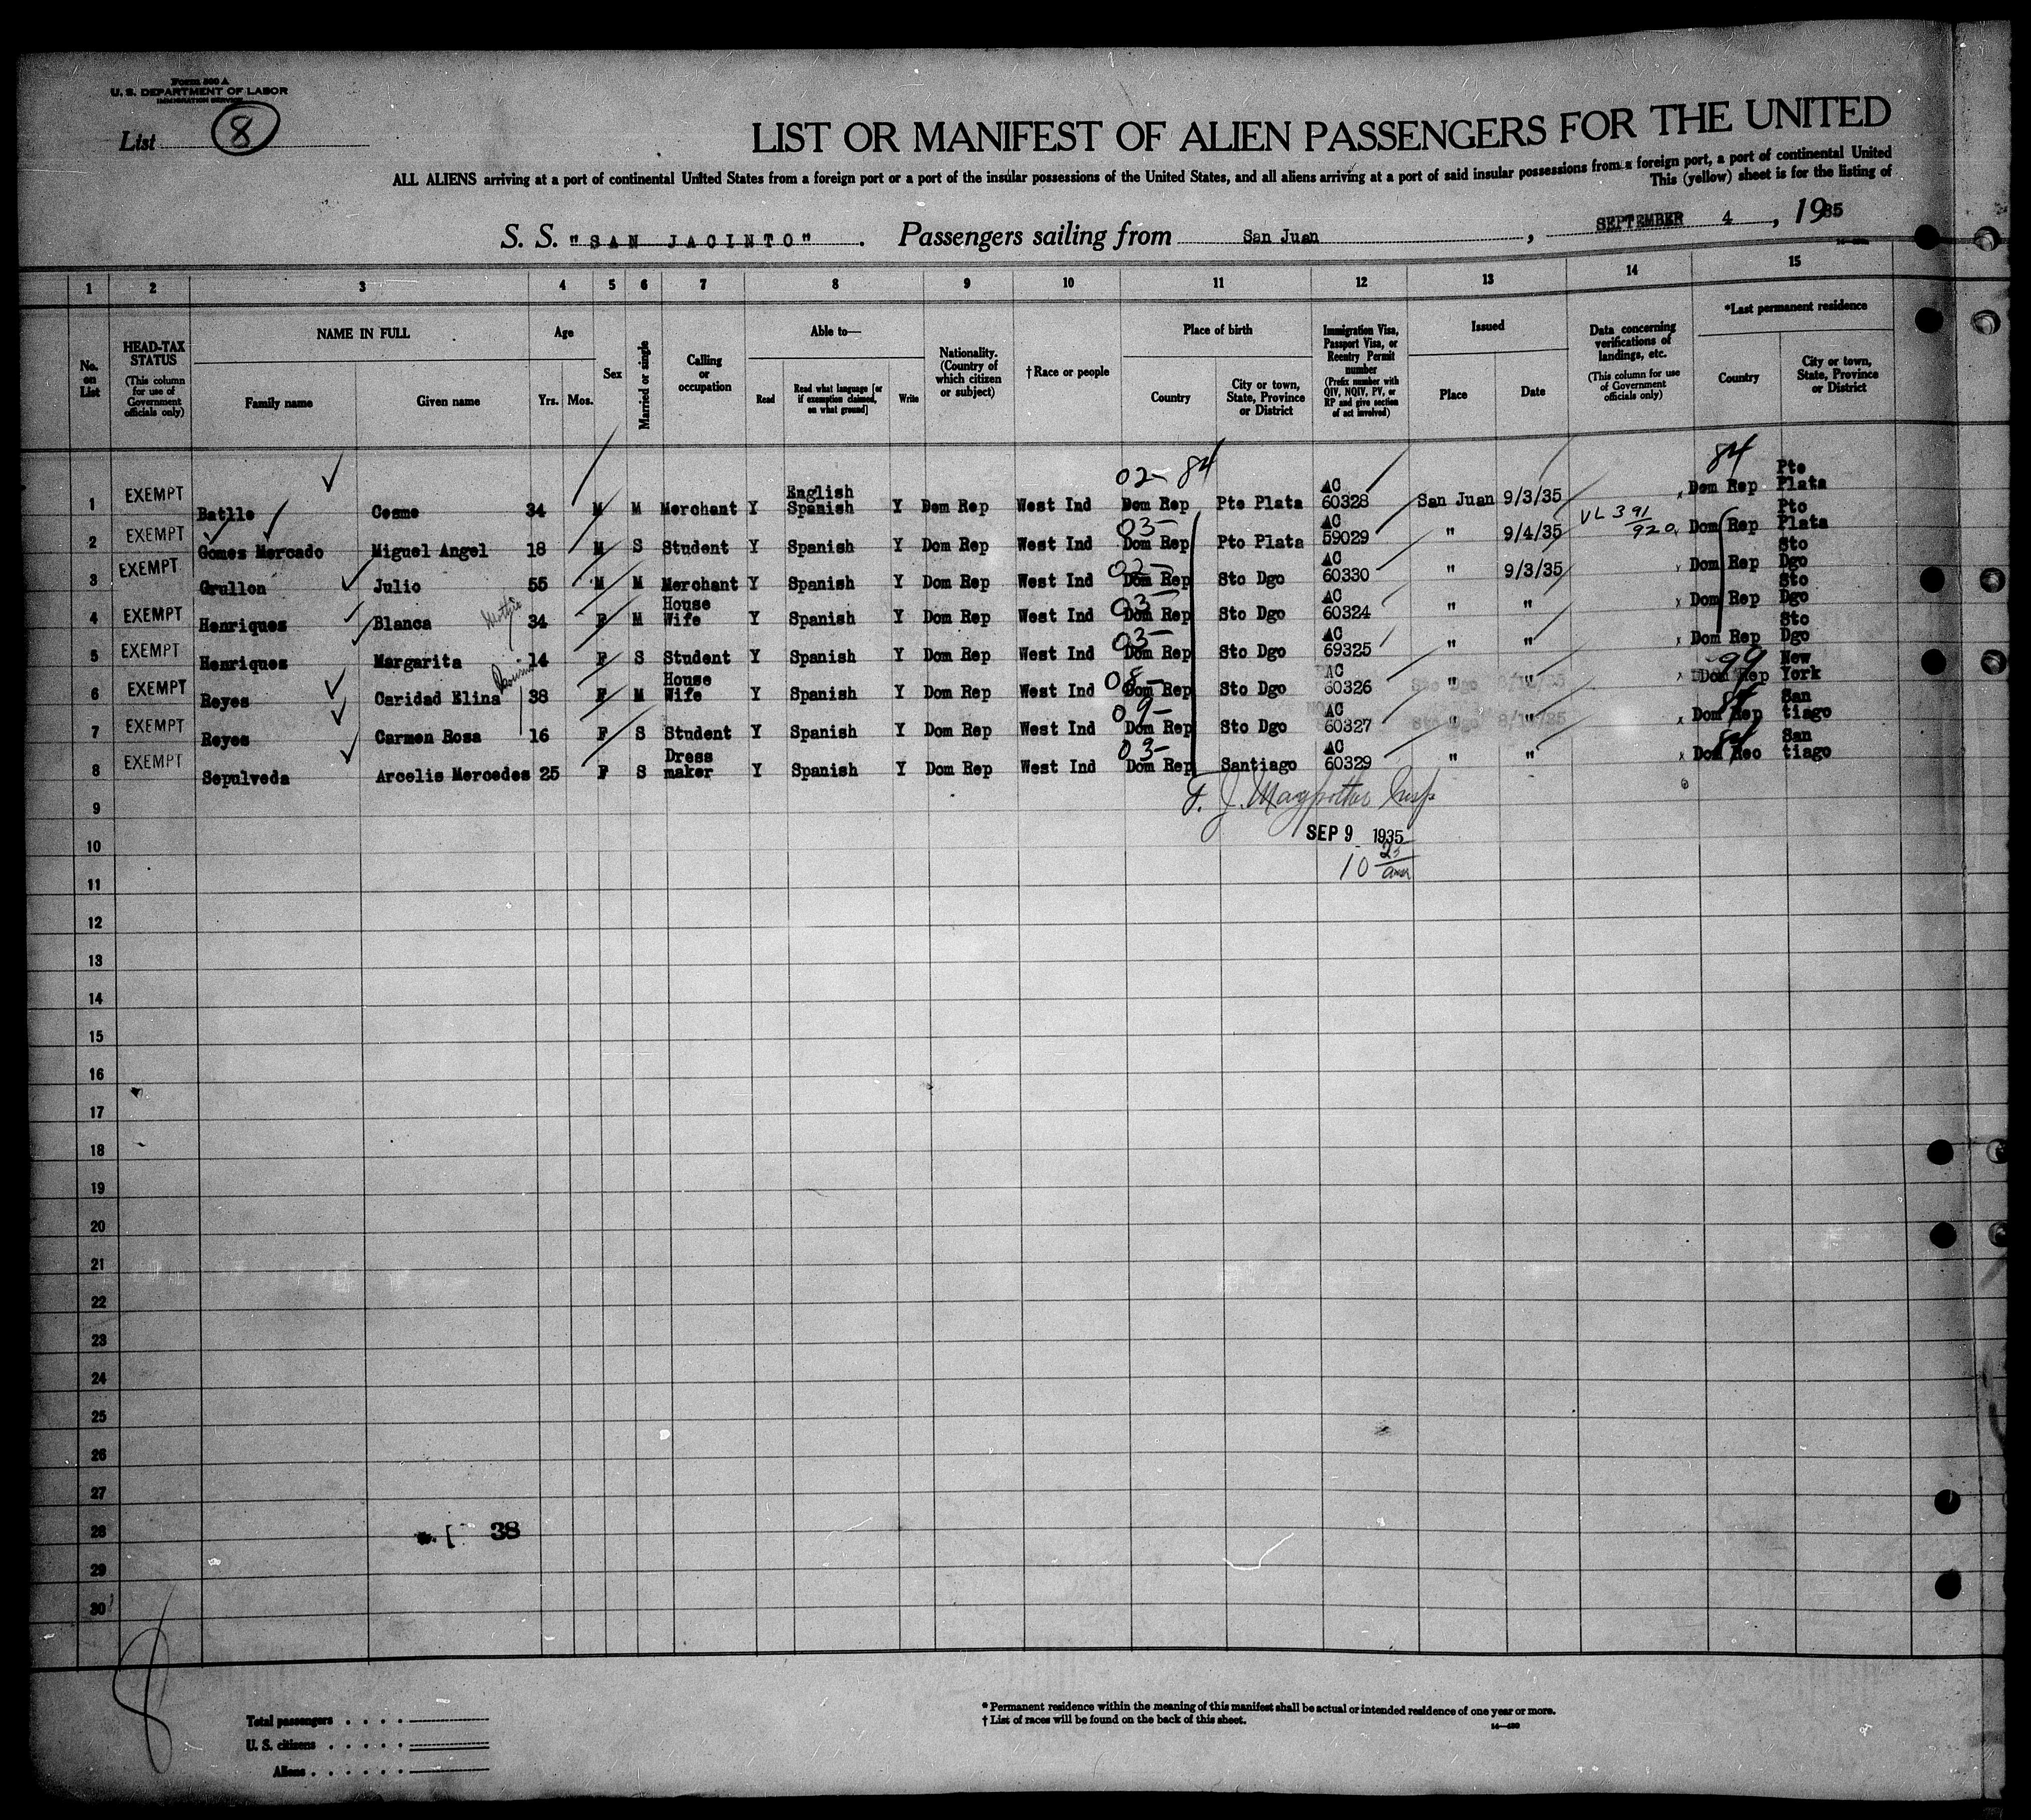 Form 500 A
U. S. DEPARTMENT OF LABOR
IMMIGRATION SERVICE
List 8
LIST OR MANIFEST OF ALIEN PASSENGERS FOR THE UNITED
ALL ALIENS arriving at a port of continental United States from a foreign port or a port of the insular possessions of the United States, and all aliens arriving at a port of said insular possessions from a foreign port, a port of continental United
This (yellow) sheet is for the listing of
S. S. "SAN JACINTO" . Passengers sailing from San Juan , SEPTEMBER 4 , 1935
1 2 3 4 5 6 7 8 9 10 11 12 13 14 15
No. on List
HEAD-TAX STATUS
(This column for use of Government officials only)
NAME IN FULL
Family name Given name
Age
Yrs. Mos.
Sex
Married or single
Calling or occupation
Able to—
Read
Read what language [or if exemption claimed, on what ground]
Write
Nationality. (Country of which citizen or subject)
†Race or people
Place of birth
Country
City or town, State, Province or District
Immigration Visa, Passport Visa, or Reentry Permit number
(Prefix number with QIV, NQIV, PV, or RP and give section of act involved)
Issued
Place Date
Data concerning verifications of landings, etc.
(This column for use of Government officials only)
*Last permanent residence
Country
City or town, State, Province or District
02- 84 84
1 EXEMPT Batlle Cosme 34 M M Merchant Y English Spanish Y Dom Rep West Ind Dom Rep Pto Plata AC 60328 San Juan 9/3/35 x Dom Rep Pto Plata
03-
2 EXEMPT Gomes Mercado Miguel Angel 18 M S Student Y Spanish Y Dom Rep West Ind Dom Rep Pto Plata AC 59029 " 9/4/35 VL 391/920 Dom Rep Pto Plata
02-
3 EXEMPT Grullon Julio 55 M M Merchant Y Spanish Y Dom Rep West Ind Dom Rep Sto Dgo AC 60330 " 9/3/35 x Dom Rep Sto Dgo
03-
4 EXEMPT Henriques Blanca 34 F M House Wife Y Spanish Y Dom Rep West Ind Dom Rep Sto Dgo AC 60324 " " x Dom Rep Sto Dgo
03-
5 EXEMPT Henriques Margarita 14 F S Student Y Spanish Y Dom Rep West Ind Dom Rep Sto Dgo AC 69325 " " x Dom Rep Sto Dgo
08- 99
6 EXEMPT Reyes Caridad Elina 38 F M House Wife Y Spanish Y Dom Rep West Ind Dom Rep Sto Dgo AC 60326 " " x Dom Rep New York
09- 84
7 EXEMPT Reyes Carmen Rosa 16 F S Student Y Spanish Y Dom Rep West Ind Dom Rep Sto Dgo AC 60327 " " x Dom Rep San tiago
03- 84
8 EXEMPT Sepulveda Arcelis Mercedes 25 F S Dress maker Y Spanish Y Dom Rep West Ind Dom Rep Santiago AC 60329 " " x Dom Reo San tiago
9
SEP 9 1935
10
10 25 am
11
12
13
14
15
16
17
18
19
20
21
22
23
24
25
26
27
28 38
29
30
8
Total passengers
U. S. citizens
Aliens
* Permanent residence within the meaning of this manifest shall be actual or intended residence of one year or more.
† List of races will be found on the back of this sheet.